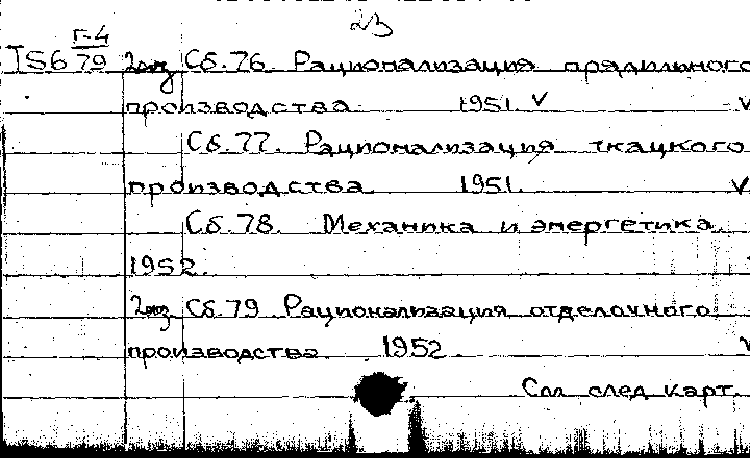 23
Г-4
IS6 79 2экз Сб. 76. Рационализация прядильного
производства 1951. v v
Сб. 77. Рационализация ткацкого
производства 1951. v
Сб. 78. Механика и энергетика
1952.
2экз. Сб. 79 Рационализация отделочного
производства 1952. v
См след карт.